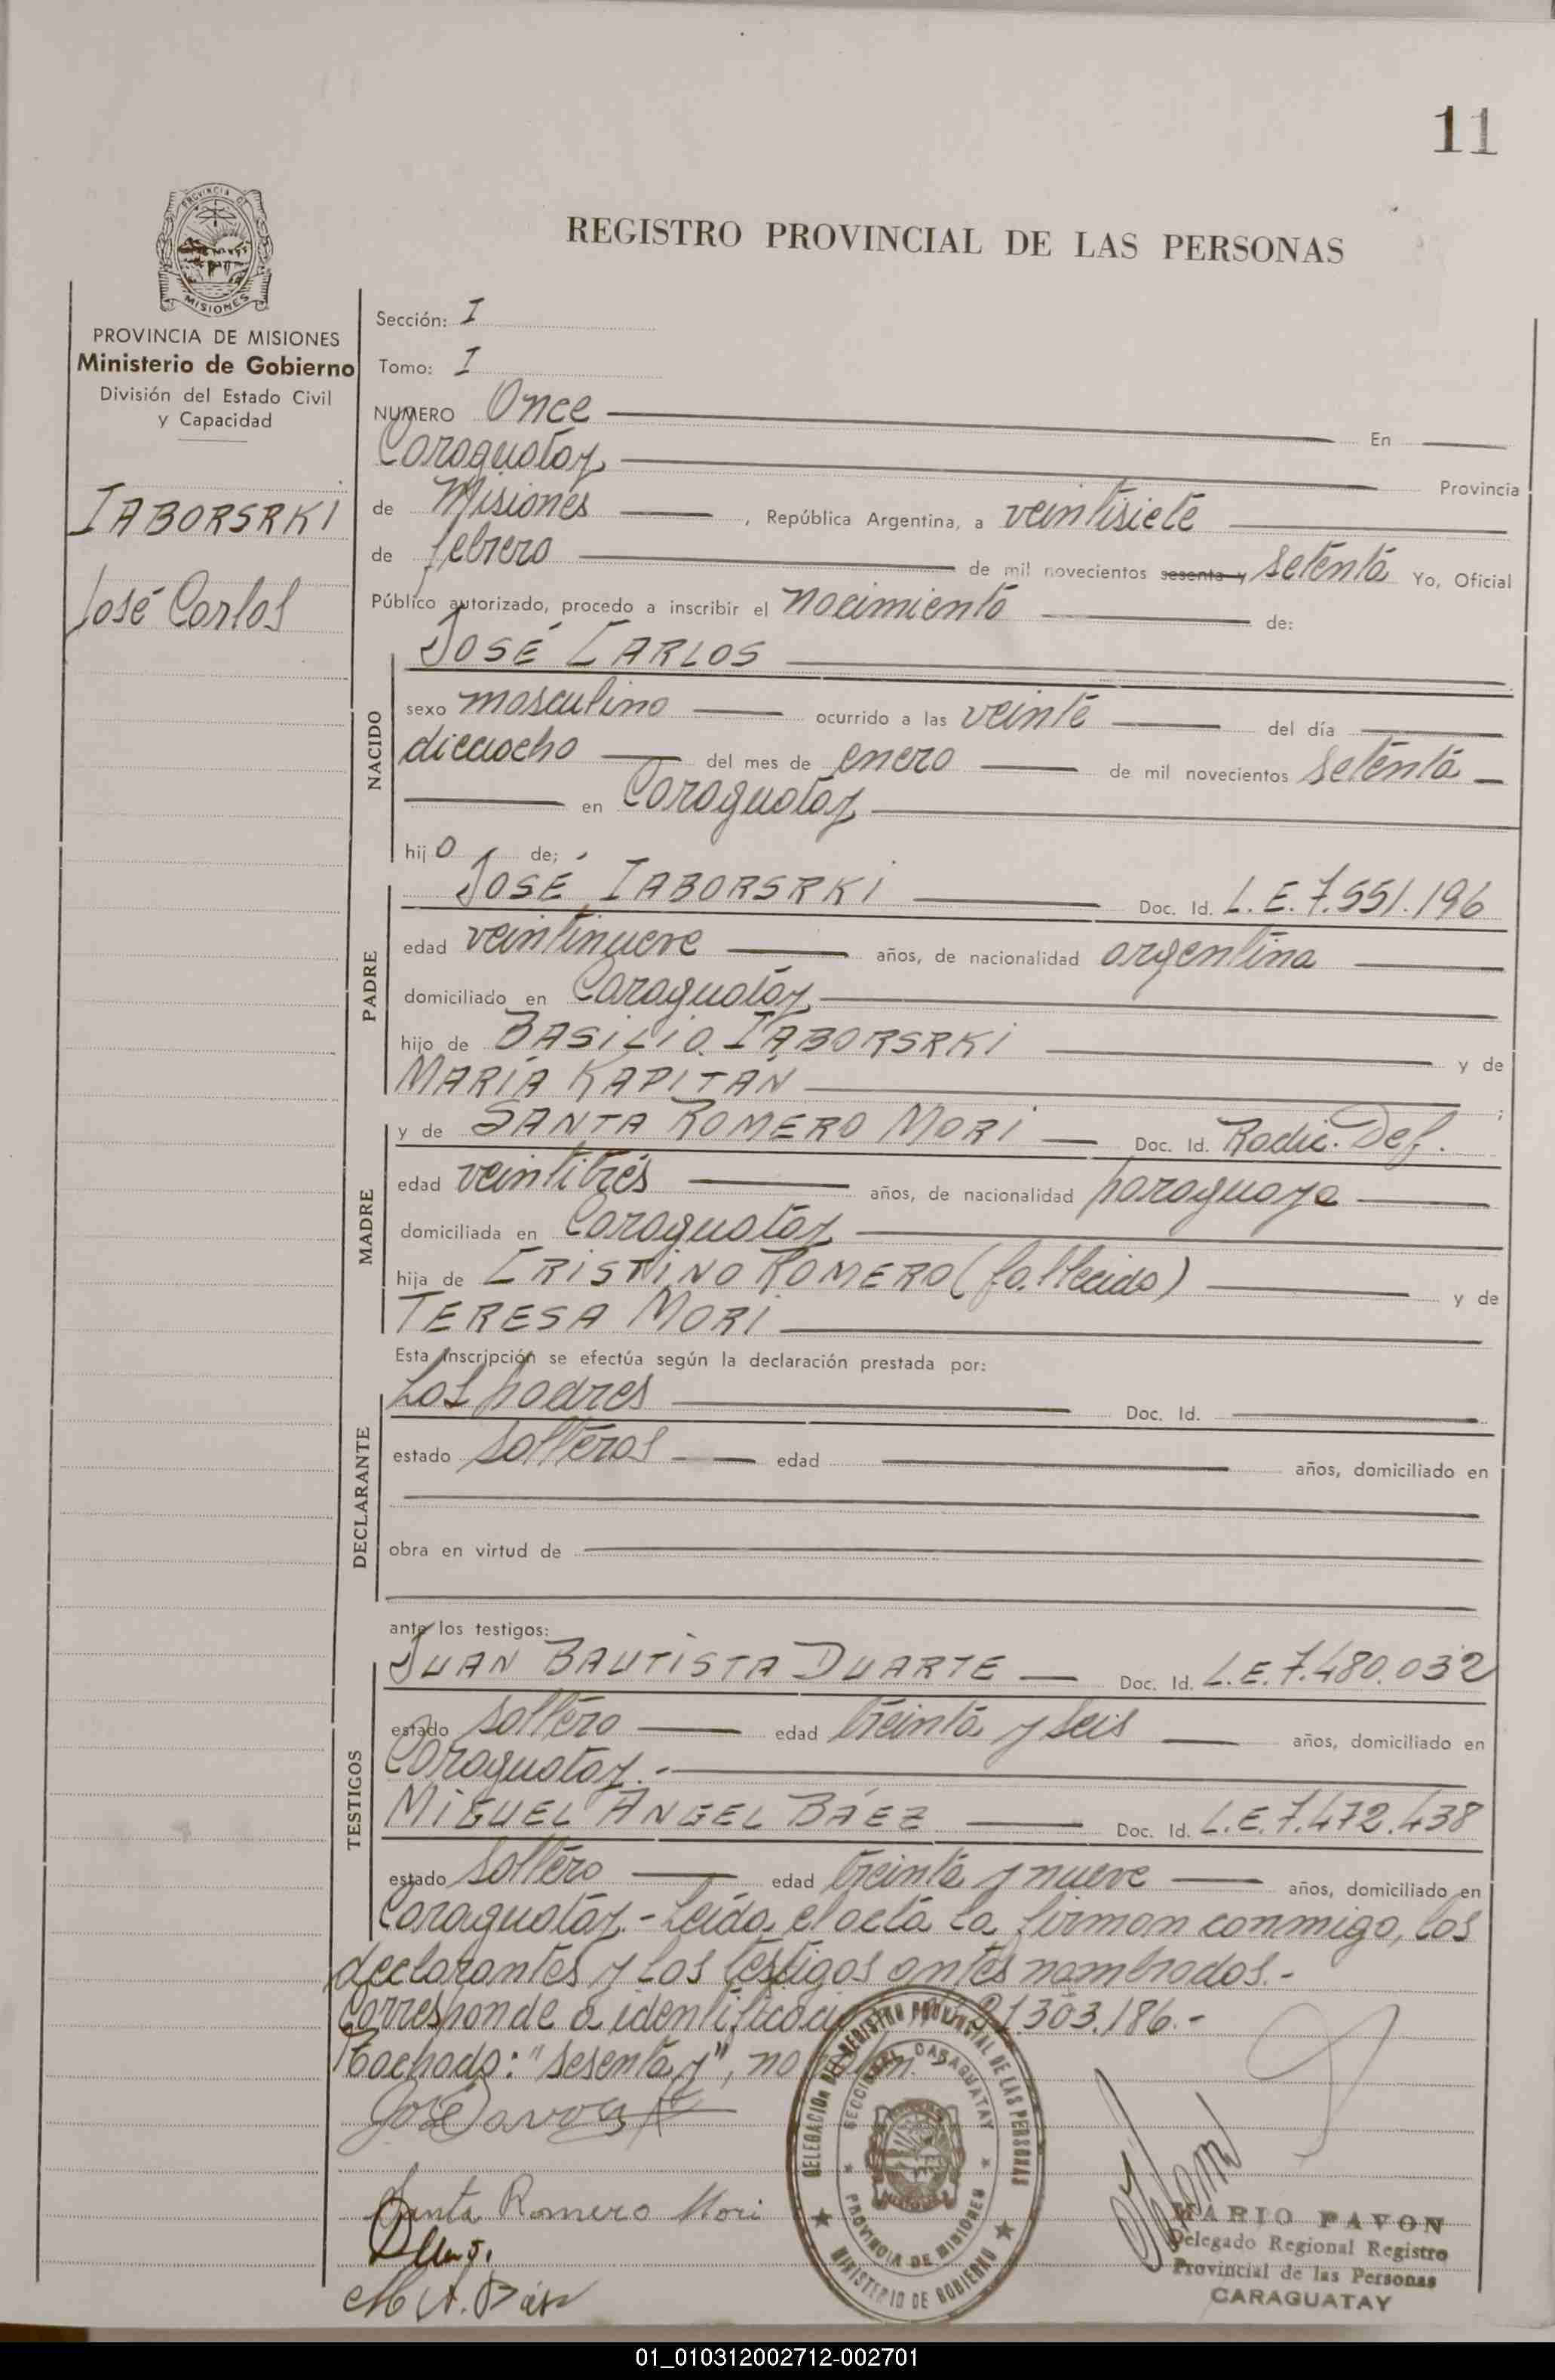 11
PROVINCIA DE
MISIONES
REGISTRO PROVINCIAL DE LAS PERSONAS
PROVINCIA DE MISIONES
Ministerio de Gobierno
División del Estado Civil
y Capacidad
IABORSRKI
José Carlos
Sección: I
Tomo: I
NUMERO Once En
Caraguatay
Provincia
de Misiones, República Argentina, a veintisiete
de febrero de mil novecientos sesenta y setenta Yo, Oficial
Público autorizado, procedo a inscribir el nacimiento de:
JOSÉ CARLOS
NACIDO
sexo masculino ocurrido a las veinte del día
dieciocho del mes de enero de mil novecientos setenta
en Caraguatay
hijo de;
PADRE
JOSÉ IABORSRKI Doc. Id. L.E. 7.551.196
edad veintinueve años, de nacionalidad argentina
domiciliado en Caraguatay
hijo de BASILIO IABORSRKI y de
MARÍA KAPITÁN ;
MADRE
y de SANTA ROMERO MORI Doc. Id. Radic. Def.
edad veintitrés años, de nacionalidad paraguaya
domiciliada en Caraguatay
hija de CRISTINO ROMERO (fallecido) y de
TERESA MORI
Esta inscripción se efectúa según la declaración prestada por:
DECLARANTE
Los padres Doc. Id.
estado solteros edad años, domiciliado en
obra en virtud de
ante los testigos:
TESTIGOS
JUAN BAUTISTA DUARTE Doc. Id. L.E. 7.480.032
estado soltero edad treinta y seis años, domiciliado en
Caraguatay.-
MIGUEL ANGEL BÁEZ Doc. Id. L.E. 7.472.438
estado soltero edad treinta y nueve años, domiciliado en
Caraguatay.- Leída el acta la firman conmigo, los
declarantes y los testigos antes nombrados.-
Corresponde a identificación 21.303.186.-
Tachado: "sesenta y", no
Santa Romero Mori
M A. Báez
DELEGACION DEL REGISTRO PROVINCIAL DE LAS PERSONAS
SECCIONAL CARAGUATAY
PROVINCIA DE MISIONES
MINISTERIO DE GOBIERNO
MARIO PAVON
Delegado Regional Registro
Provincial de las Personas
CARAGUATAY
01_010312002712-002701